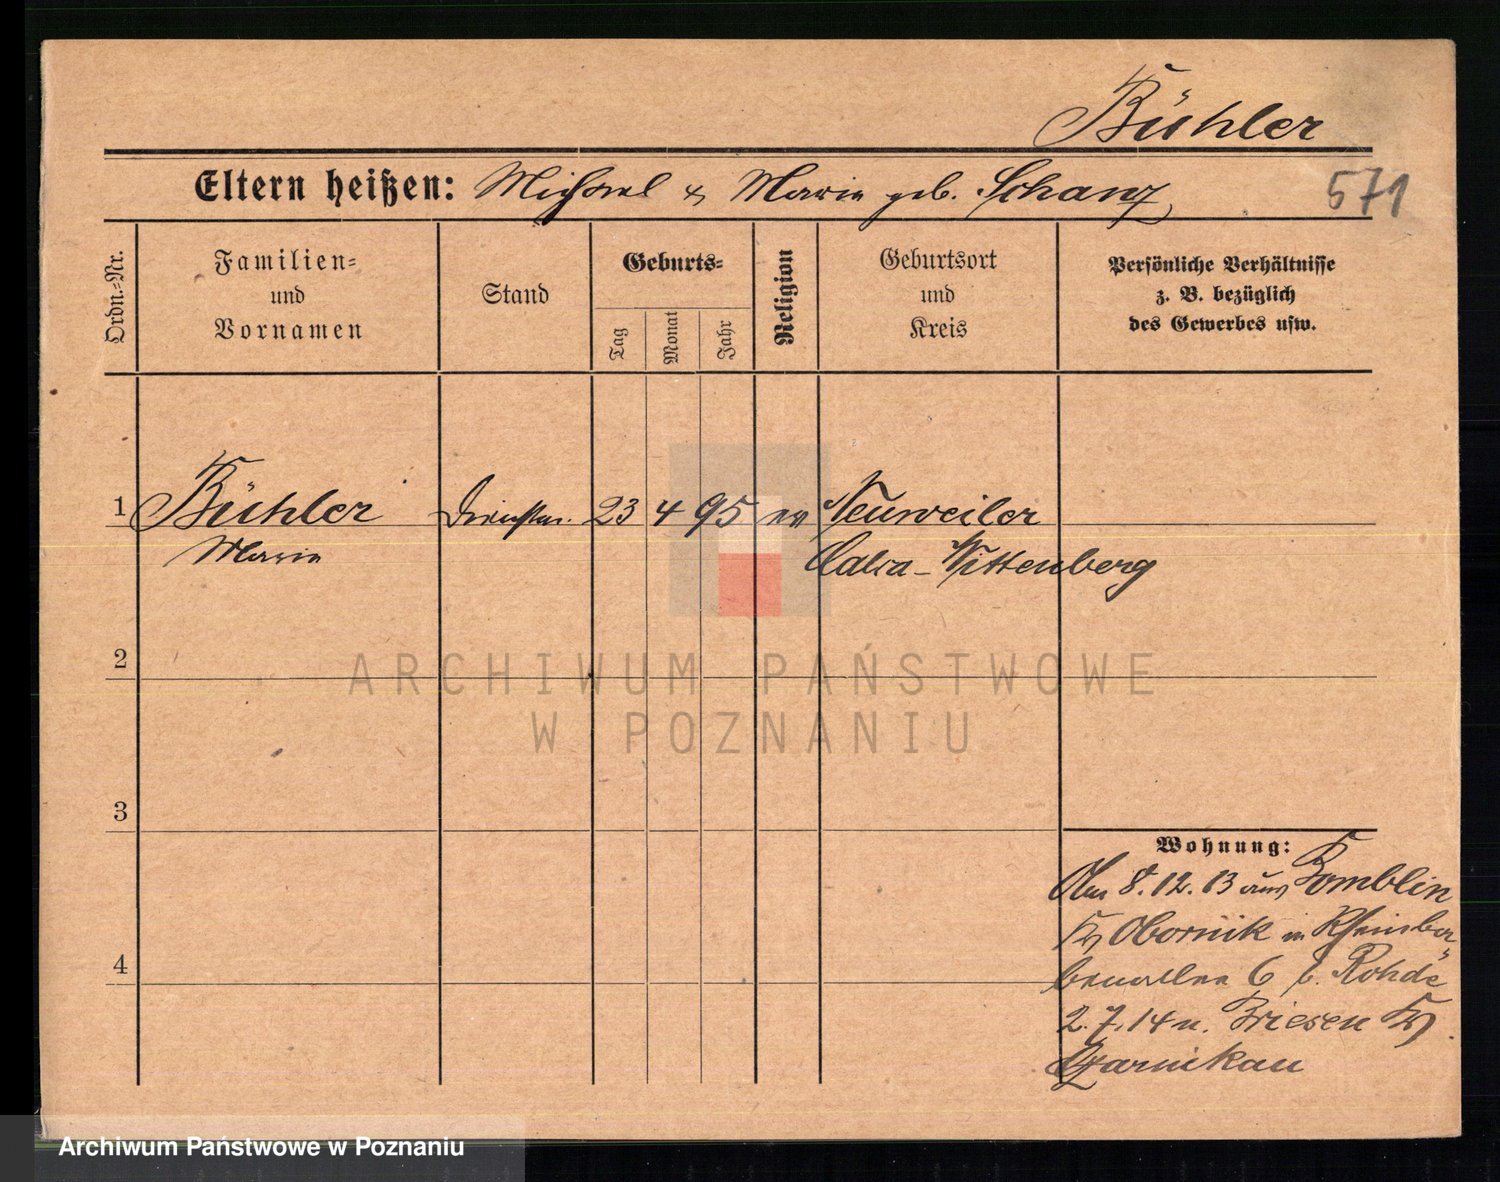 Bühler
Eltern heißen: Michael & Marie geb. Schanz
571
Ordn.-Nr.
Familien-
und
Vornamen
Stand
Geburts-
Tag
Monat
Jahr
Religion
Geburtsort
und
Kreis
Persönliche Verhältnisse
z. B. bezüglich
des Gewerbes usw.
1 Bühler Dienstm. 23 4 95 ev Neuweiler
Marie Calw - Wittenberg
2
ARCHIWUM PAŃSTWOWE
W POZNANIU
3
Wohnung:
8.12.13 aus Tomblin
Kr Obornik in
6 b. Rohde
2.7.14 n. Briesen Kr
4
Czarnikau
Archiwum Państwowe w Poznaniu